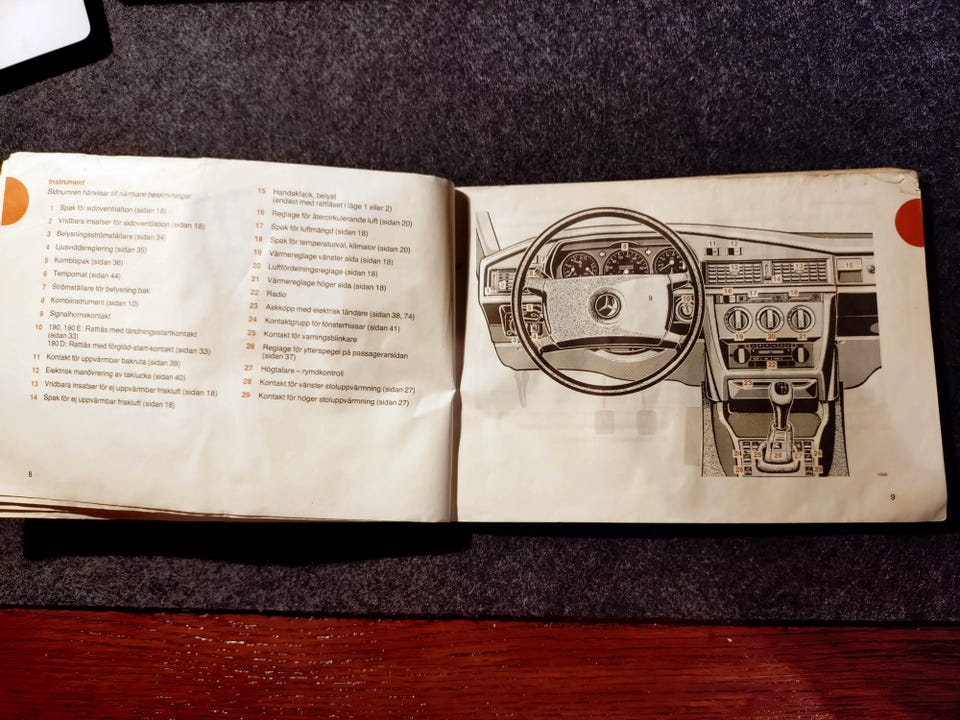 Instrument
Sidnumren hänvisar till närmare beskrivningar
1 Spak för sidoventilation (sidan 18)
2 Vridbara insatser för sidoventilation (sidan 18)
3 Belysningsströmställare (sidan 34)
4 Ljusviddsreglering (sidan 35)
5 Kombispak (sidan 36)
6 Tempomat (sidan 44)
7 Strömställare för belysning bak
8 Kombinstrument (sidan 10)
9 Signalhornskontakt
10 190, 190 E: Rattlås med tändningsstartkontakt
(sidan 33)
190 D: Rattlås med förglöd-start-kontakt (sidan 33)
11 Kontakt för uppvärmbar bakruta (sidan 39)
12 Elektrisk manövrering av taklucka (sidan 40)
13 Vridbara insatser för ej uppvärmbar friskluft (sidan 18)
14 Spak för ej uppvärmbar friskluft (sidan 18)
8
15 Handskfack, belyst
(endast med rattlåset i läge 1 eller 2)
16 Reglage för återcirkulerande luft (sidan 20)
17 Spak för luftmängd (sidan 18)
18 Spak för temperaturval, klimator (sidan 20)
19 Värmereglage vänster sida (sidan 18)
20 Luftfördelningsreglage (sidan 18)
21 Värmereglage höger sida (sidan 18)
22 Radio
23 Askkopp med elektrisk tändare (sidan 38, 74)
24 Kontaktgrupp för fönsterhissar (sidan 41)
25 Kontakt för varningsblinkare
26 Reglage för ytterspegel på passagerarsidan
(sidan 37)
27 Högtalare – rymdkontroll
28 Kontakt för vänster stoluppvärmning (sidan 27)
29 Kontakt för höger stoluppvärmning (sidan 27)
8
11 12
13 13
15
9
10
16 17 18
19 20 21
22
23
24 25 26 27
28
9